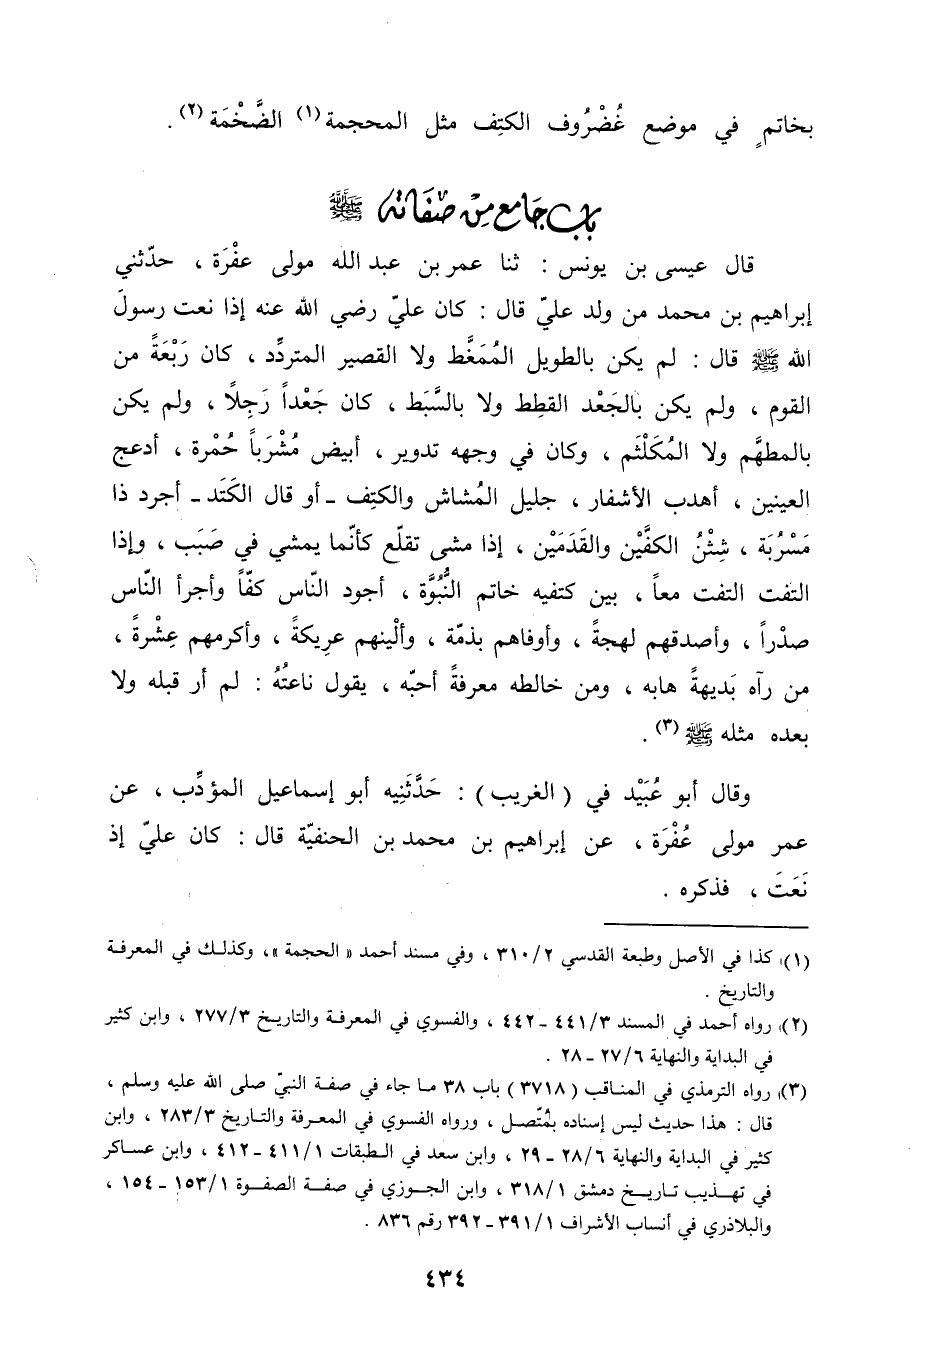 بخاتمٍ في موضع غُضْرُوف الكتِف مثل المحجمة (١) الضَّخْمَة (٢) .
باب جامع من صفاته ﷺ
قال عيسى بن يونس : ثنا عمر بن عبد الله مولى عفْرَة ، حدّثني
إبراهيم بن محمد من ولد عليّ قال : كان عليّ رضي الله عنه إذا نعت رسولَ
الله ﷺ قال : لم يكن بالطويل المُمَغَّط ولا القصير المتردِّد ، كان رَبْعَةً من
القوم ، ولم يكن بالجَعْد القطِط ولا بالسَّبَط ، كان جَعْداً رَجِلاً ، ولم يكن
بالمطهَّم ولا المُكَلْثَم ، وكان في وجهه تدوير ، أبيض مُشْرَباً حُمْرة ، أدعج
العينين ، أهدب الأشفار ، جليل المُشاش والكتِف ـ أو قال الكَتَد ـ أجرد ذا
مَسْرُبَة ، شِثْنُ الكفَّيْن والقَدَمَيْن ، إذا مشى تقلّع كأنّما يمشي في صَبَب ، وإذا
التفت التفت معاً ، بين كتفيه خاتم النُّبُوَّة ، أجود النّاس كفّاً وأجرأ النّاس
صدْراً ، وأصدقهم لهجةً ، وأوفاهم بذمّة ، وألْينهم عرِيكةً ، وأكرمهم عِشْرةً ،
من رآه بَديهةً هابه ، ومن خالطه معرفةً أحبّه ، يقول ناعتُهُ : لم أر قبله ولا
بعده مثله ﷺ (٣) .
وقال أبو عُبَيْد في ( الغريب ) : حَدَّثَنِيه أبو إسماعيل المؤدِّب ، عن
عمر مولى عُفْرَة ، عن إبراهيم بن محمد بن الحنفيّة قال : كان عليّ إذ
نَعَتَ ، فذكره .
(١) كذا في الأصل وطبعة القدسي ٣١٠/٢ ، وفي مسند أحمد « الحجمة » ، وكذلك في المعرفة
والتاريخ .
(٢) رواه أحمد في المسند ٤٤١/٣ ـ ٤٤٢ ، والفسوي في المعرفة والتاريخ ٢٧٧/٣ ، وابن كثير
في البداية والنهاية ٢٧/٦ ـ ٢٨ .
(٣) رواه الترمذي في المناقب ( ٣٧١٨ ) باب ٣٨ ما جاء في صفة النبيّ صلى الله عليه وسلم ،
قال : هذا حديث ليس إسناده بمُتّصل ، ورواه الفسوي في المعرفة والتاريخ ٢٨٣/٣ ، وابن
كثير في البداية والنهاية ٢٨/٦ ـ ٢٩ ، وابن سعد في الطبقات ٤١١/١ ـ ٤١٢ ، وابن عساكر
في تهذيب تاريخ دمشق ٣١٨/١ ، وابن الجوزي في صفة الصفوة ١٥٣/١ ـ ١٥٤ ،
والبلاذري في أنساب الأشراف ٣٩١/١ ـ ٣٩٢ رقم ٨٣٦ .
٤٣٤